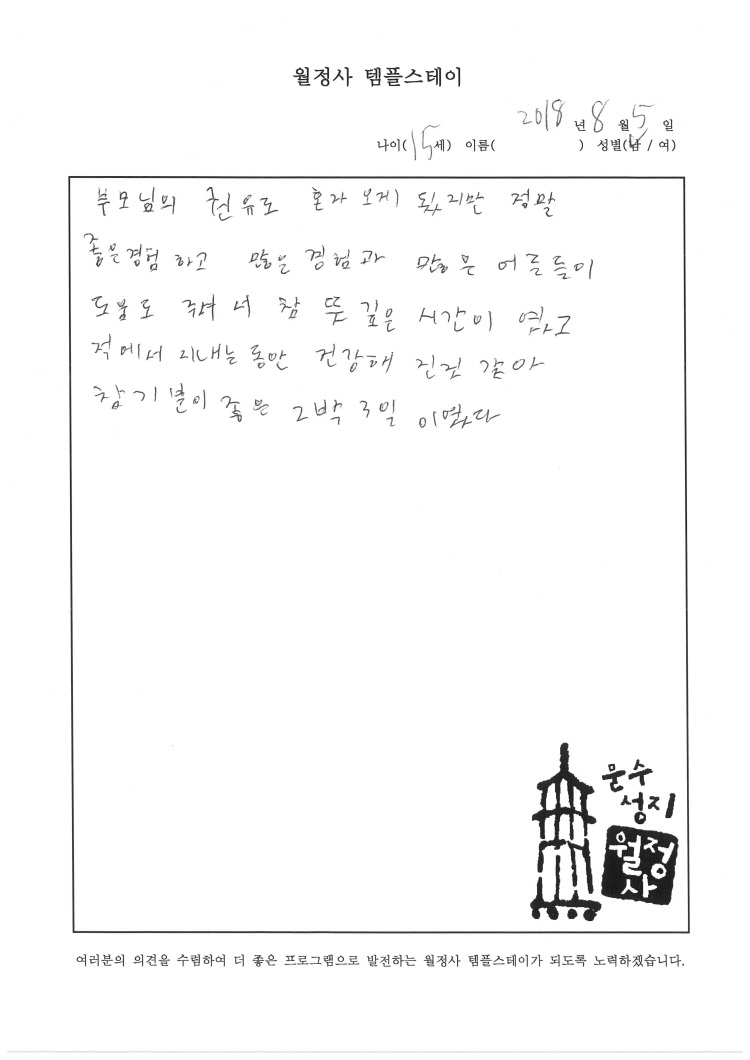 월정사 템플스테이
2018 년 8 월 5 일
나이( 15 세) 이름( ) 성별(남 / 여)
부모님의 권유로 혼자 오게 됬지만 정말
좋은경험 하고 많은 경험과 많은 어른들이
도움도 주셔서 참 뜻 깊은 시간이 였고
적에서 지내는 동안 건강해 진것 같아
참 기분이 좋은 2박 3일 이였다
문수
성지
월정
사
여러분의 의견을 수렴하여 더 좋은 프로그램으로 발전하는 월정사 템플스테이가 되도록 노력하겠습니다.